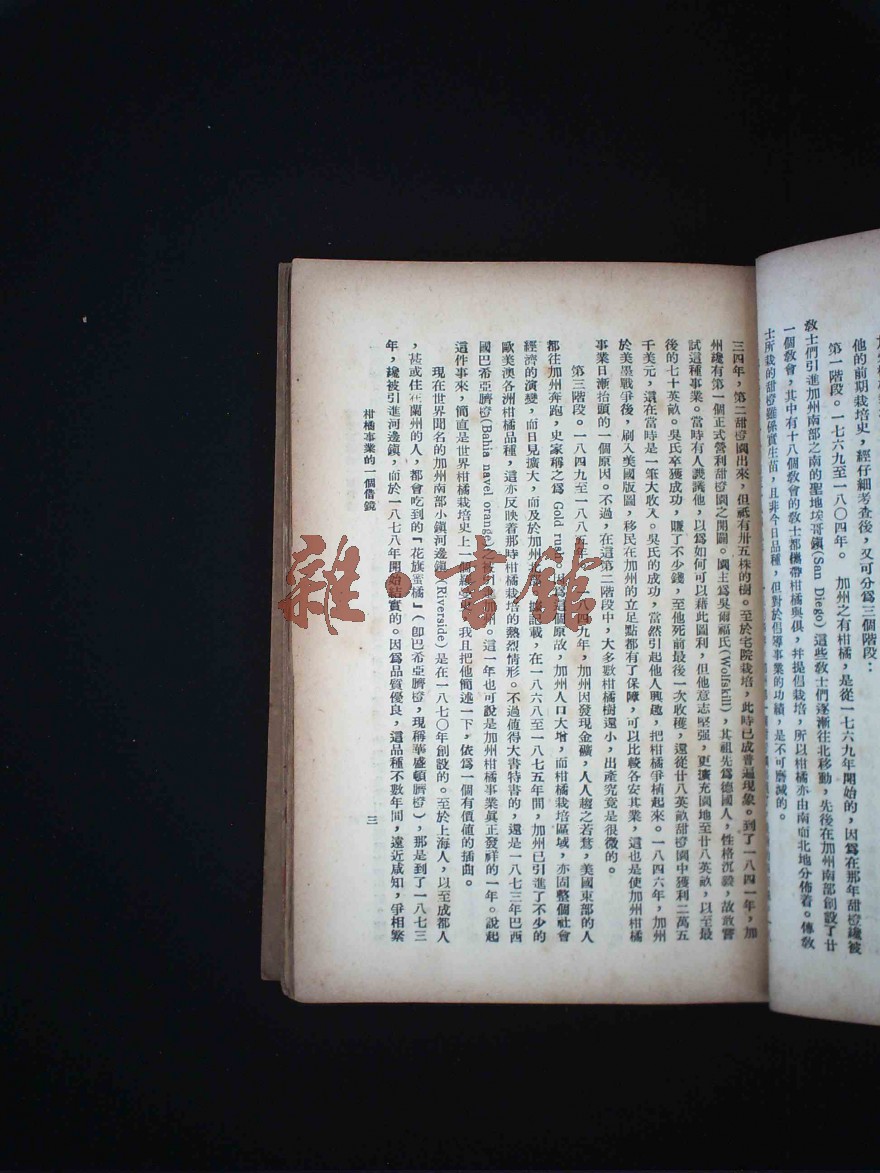 他的前期栽培史,經仔細考查後,又可分爲三個階段:
第一階段。一七六九至一八〇四年。加州之有柑橘,是從一七六九年開始的,因爲在那年甜橙纔被
教士們引進加州南部之南的聖地埃哥鎮(San Diego)這些教士們逐漸往北移動,先後在加州南部創設了廿
一個教會,其中有十八個教會的教士都攜帶柑橘與俱,并提倡栽培,所以柑橘亦由南而北地分佈着。傳教
士所栽的甜橙雖係實生苗,且非今日品種,但對於倡導事業的功績,是不可磨滅的。
三四年,第二甜橙園出來,但祇有卅五株的樹。至於宅院栽培,此時已成普遍現象。到了一八四一年,加
州纔有第一個正式營利甜橙園之開闢。園主爲吳爾福氏(Wolfskill),其祖先爲德國人,性格沉毅,故敢嘗
試這種事業。當時有人譏誚他,以爲如何可以藉此圖利,但他意志堅强,更擴充園地至廿八英畝,以至最
後的七十英畝。吳氏卒獲成功,賺了不少錢,至他死前最後一次收穫,還從廿八英畝甜橙園中獲利二萬五
千美元,這在當時是一筆大收入。吳氏的成功,當然引起他人興趣,把柑橘爭植起來。一八四六年,加州
於美墨戰爭後,刷入美國版圖,移民在加州的立足點都有了保障,可以比較各安其業,這也是使加州柑橘
事業日漸抬頭的一個原因。不過,在這第二階段中,大多數柑橘樹還小,出產究竟是很微的。
第三階段。一八四九至一八八五年。一八四九年,加州因發現金礦,人人趨之若鶩,美國東部的人
都往加州奔跑,史家稱之爲 Gold rush,因爲這個原故,加州人口大增,而柑橘栽培區域,亦固整個社會
經濟的演變,而日見擴大,而及於加州北部。據記載,在一八六八至一八七五年間,加州已引進了不少的
歐美澳各洲柑橘品種,這亦反映着那時柑橘栽培的熱烈情形。不過值得大書特書的,還是一八七三年巴西
國巴希亞臍橙(Bahia navel orange)之被引進加州。這一年也可說是加州柑橘事業眞正發祥的一年。說起
這件事來,簡直是世界柑橘栽培史上一個羅曼史,我且把他簡述一下,依爲一個有價値的插曲。
現在世界聞名的加州南部小鎮河邊鎮(Riverside)是在一八七〇年創設的。至於上海人,以至成都人
,甚或住在蘭州的人,都會吃到的『花旗蜜橘』(卽巴希亞臍橙,現稱華盛頓臍橙),那是到了一八七三
年,纔被引進河邊鎮,而於一八七八年開始結實的。因爲品質優良,這品種不數年間,遠近咸知,爭相繁
柑橘事業的一個借鏡
三
雜·書館